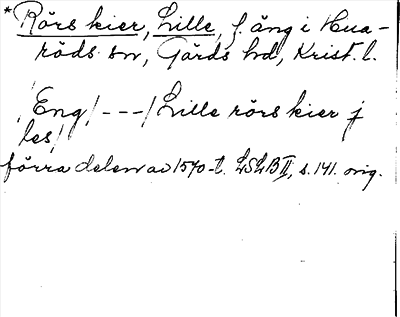 *Rörs kier, Lille, f. äng i Hua-
röds sn, Gärds hd, Krist. l.
/Eng/ --- / Lille rörs kier j
les/
förra delen av 1570-t. LSLB II, s. 141. orig.